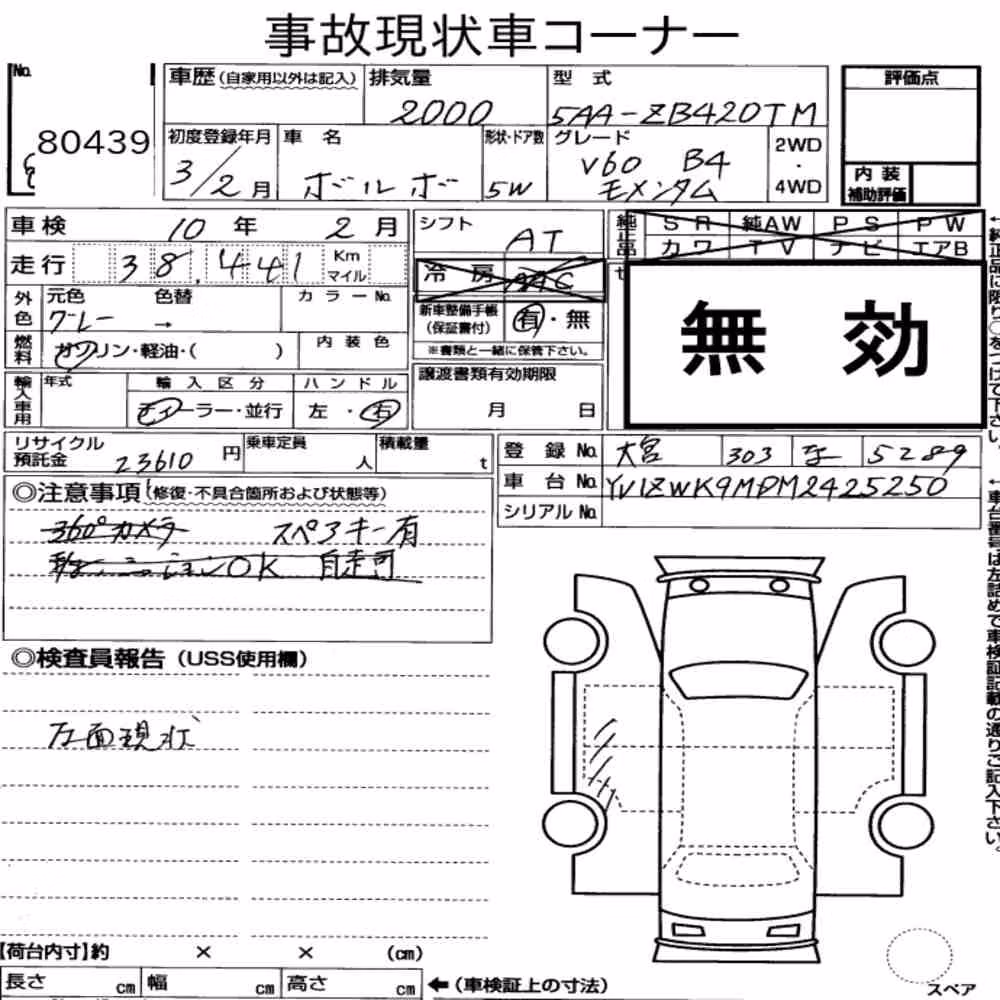 事故現状車コーナー
No.
80439
車歴 (自家用以外は記入)
排気量
2000
型 式
5AA-ZB420TM
評価点
初度登録年月
3/2月
車 名
ボルボ
形状・ドア数
5W
グレード
V60 B4
モメンタム
2WD
・
4WD
内 装
補助評価
車 検 10 年 2 月
シフト
AT
純正品
S R 純AW P S P W
カワ T V ナビ エアB
走 行 38,441 Km
マイル
冷 房
無 効
外色
元色 色替 カラーNo.
グレー →
新車整備手帳
(保証書付)
有・無
※書類と一緒に保管下さい。
燃料
ガソリン・軽油・( )
内 装 色
輸入車用
年式
輸 入 区 分
ディーラー・並行
ハ ン ド ル
左・右
譲渡書類有効期限
月 日
リサイクル
預託金
23610 円
乗車定員
人
積載量
t
登 録 No. 大宮 303 5289
車 台 No. YV1ZWK9MPM2425250
シリアル No.
◎注意事項 (修復・不具合箇所および状態等)
360°カメラ スペアキー有
OK 自走可
◎検査員報告 (USS使用欄)
左面現状
【荷台内寸】約 × × (cm)
長さ cm 幅 cm 高さ cm
← (車検証上の寸法)
スペア
←純正品に限り○をつけて下さい。
←車台番号は左詰めで車検証記載の通りご記入下さい。